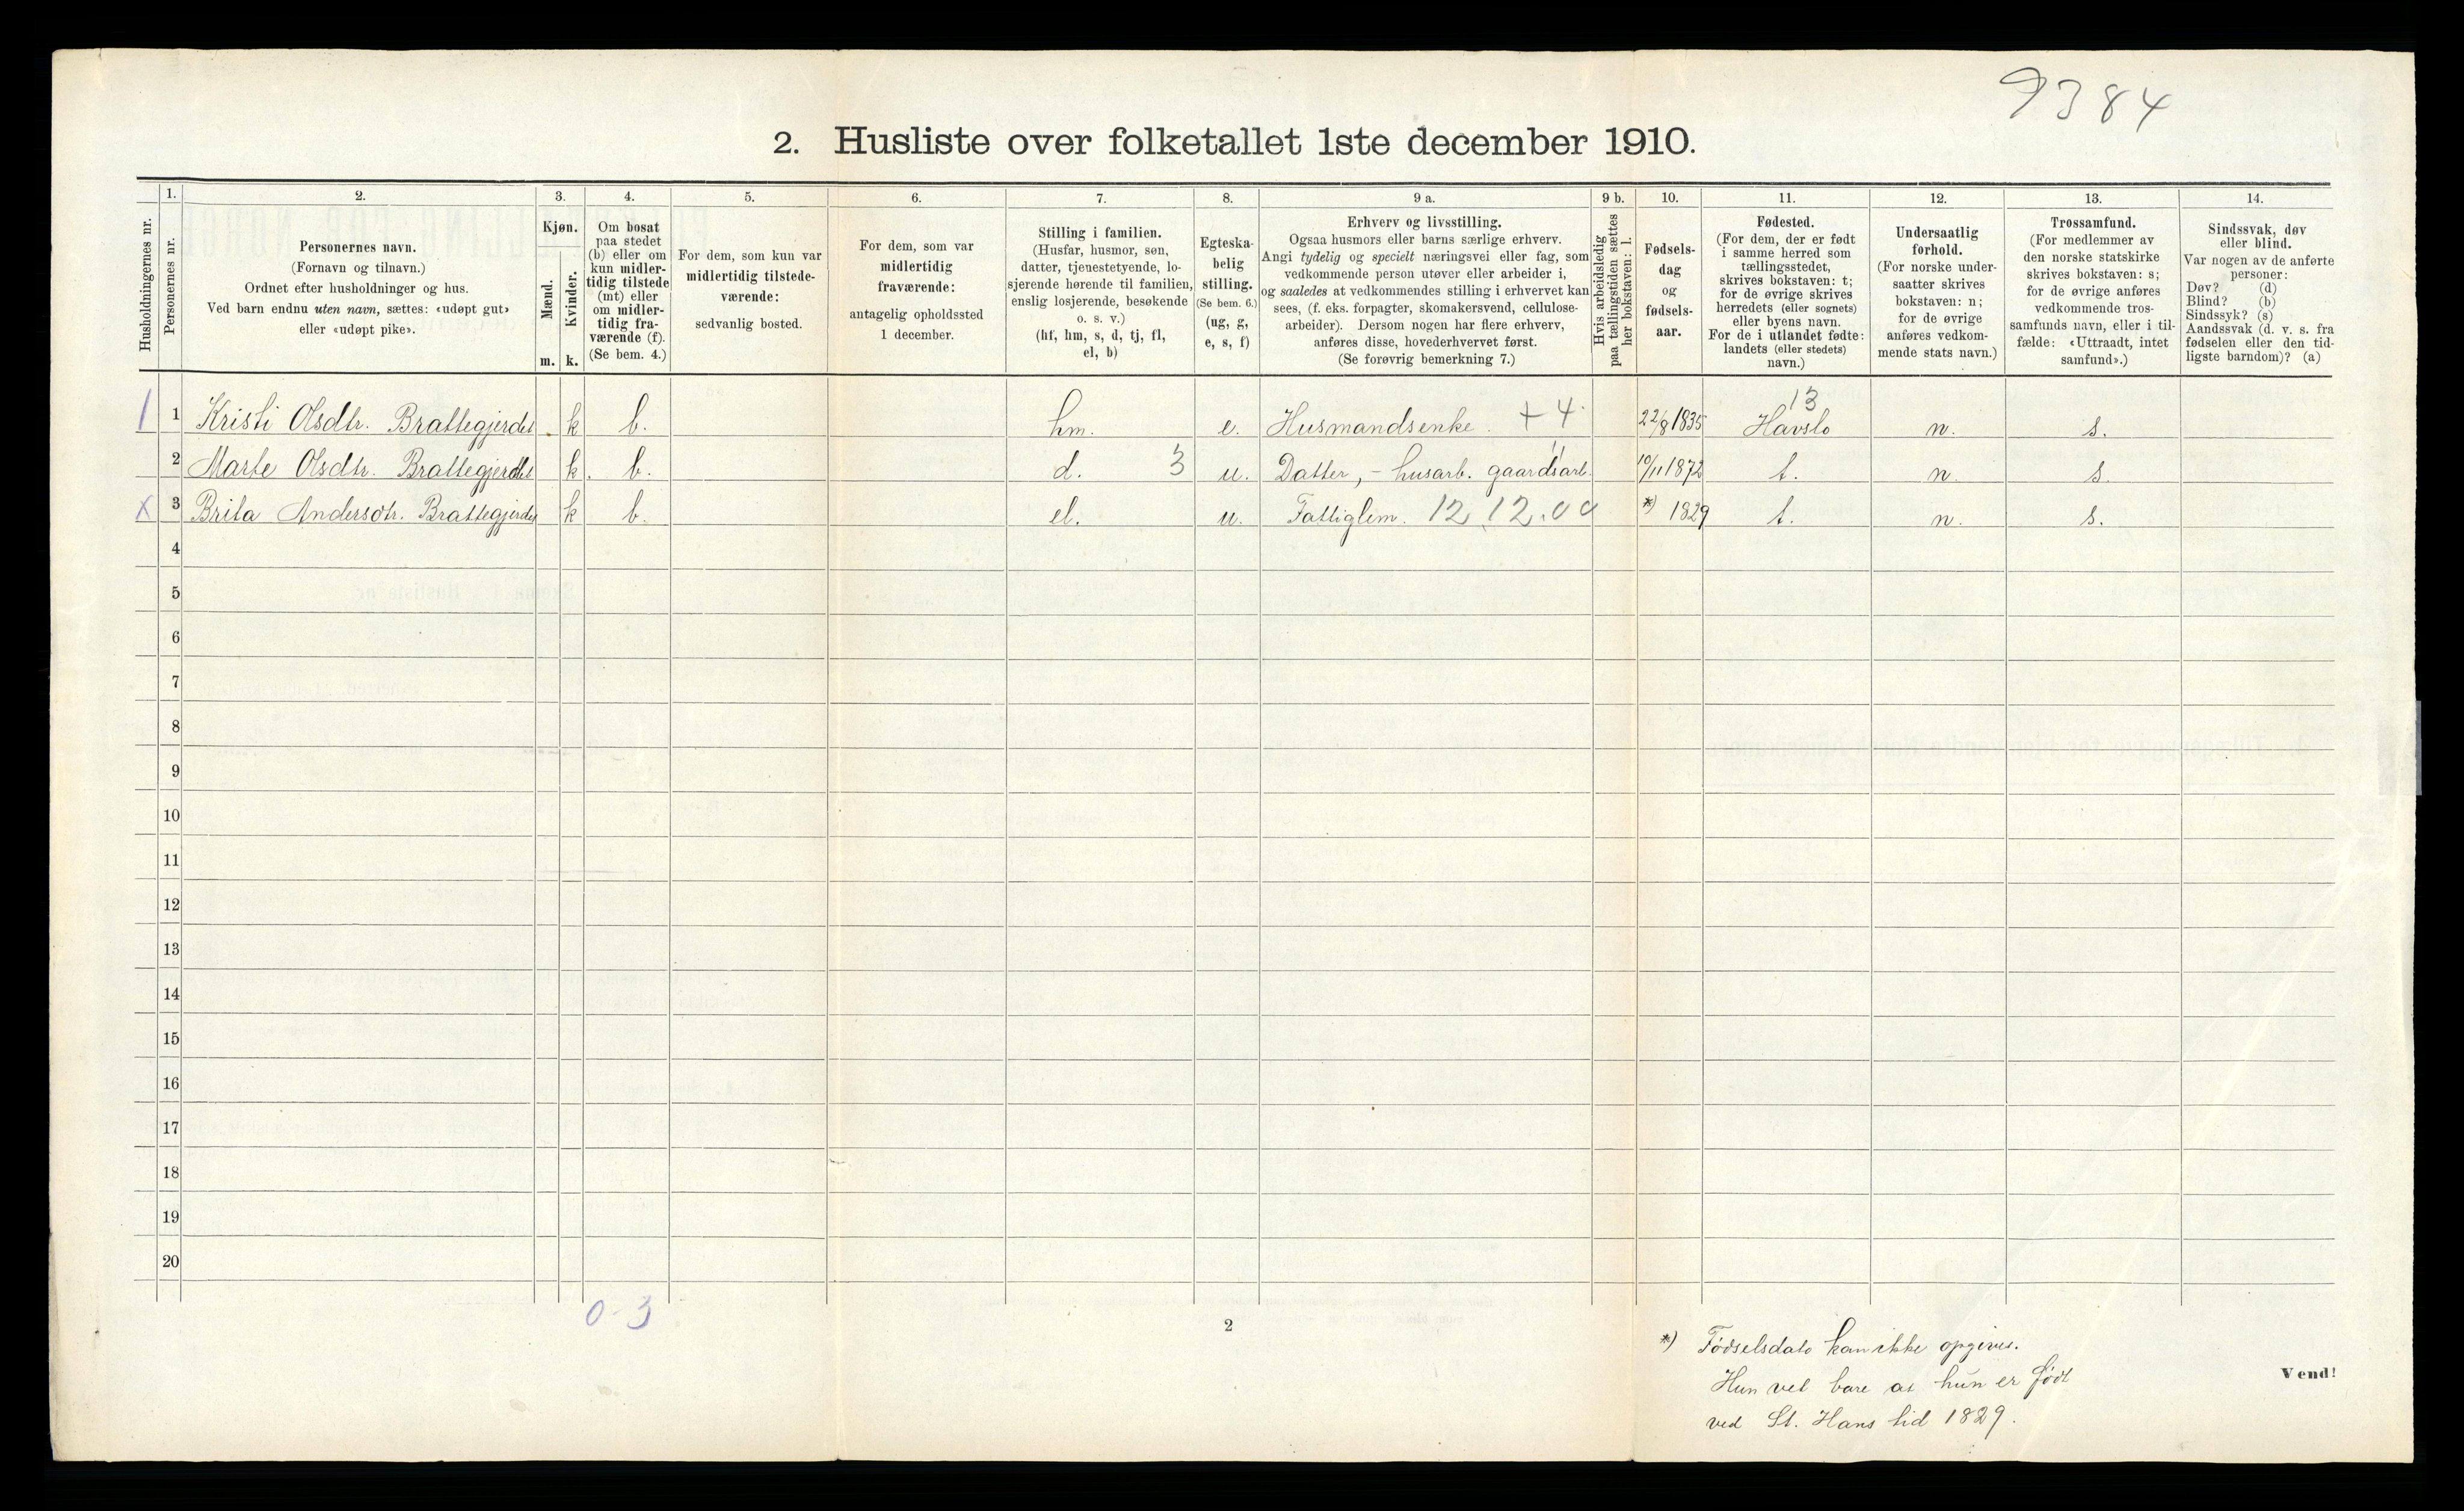 9384
2. Husliste over folketallet 1ste december 1910.
Husholdningernes nr.
1.
Personernes nr.
2.
Personernes navn.
(Fornavn og tilnavn.)
Ordnet efter husholdninger og hus.
Ved barn endnu uten navn, sættes: «udøpt gut»
eller «udøpt pike».
3.
Kjøn.
Mænd.
Kvinder.
m. k.
4.
Om bosat
paa stedet
(b) eller om
kun midler-
tidig tilstede
(mt) eller
om midler-
tidig fra-
værende (f).
(Se bem. 4.)
5.
For dem, som kun var
midlertidig tilstede-
værende:
sedvanlig bosted.
6.
For dem, som var
midlertidig
fraværende:
antagelig opholdssted
1 december.
7.
Stilling i familien.
(Husfar, husmor, søn,
datter, tjenestetyende, lo-
sjerende hørende til familien,
enslig losjerende, besøkende
o. s. v.)
(hf, hm, s, d, tj, fl,
el, b)
8.
Egteska-
belig
stilling.
(Se bem. 6.)
(ug, g,
e, s, f)
9 a.
Erhverv og livsstilling.
Ogsaa husmors eller barns særlige erhverv.
Angi tydelig og specielt næringsvei eller fag, som
vedkommende person utøver eller arbeider i,
og saaledes at vedkommendes stilling i erhvervet kan
sees, (f. eks. forpagter, skomakersvend, cellulose-
arbeider). Dersom nogen har flere erhverv,
anføres disse, hovederhvervet først.
(Se forøvrig bemerkning 7.)
9 b.
Hvis arbeidsledig
paa tællingstiden sættes
her bokstaven: l.
10.
Fødsels-
dag
og
fødsels-
aar.
11.
Fødested.
(For dem, der er født
i samme herred som
tællingsstedet,
skrives bokstaven: t;
for de øvrige skrives
herredets (eller sognets)
eller byens navn.
For de i utlandet fødte:
landets (eller stedets)
navn.)
12.
Undersaatlig
forhold.
(For norske under-
saatter skrives
bokstaven: n;
for de øvrige
anføres vedkom-
mende stats navn.)
13.
Trossamfund.
(For medlemmer av
den norske statskirke
skrives bokstaven: s;
for de øvrige anføres
vedkommende tros-
samfunds navn, eller i til-
fælde: «Uttraadt, intet
samfund».)
14.
Sindssvak, døv
eller blind.
Var nogen av de anførte
personer:
Døv? (d)
Blind? (b)
Sindssyk? (s)
Aandssvak (d. v. s. fra
fødselen eller den tid-
ligste barndom)? (a)
13
1 1 Kristi Olsdtr. Brattegjerdet k b. hm. e. Husmandsenke. + 4 22/8 1835 Havslo n. s.
2 Marte Olsdtr. Brattegjerdet k. b. d. 3 u. Datter, - husarb. gaardsarb. 10/11 1872 t. n. s.
x 3 Brita Andersdtr. Brattegjerdet k b. el. u. Fattiglem. 12 12.00 *) 1829 t. n. s.
4
5
6
7
8
9
10
11
12
13
14
15
16
17
18
19
20
0-3
2
*) Fødselsdato kan ikke opgives.
Hun vet bare at hun er født
ved St. Hans tid 1829.
Vend!